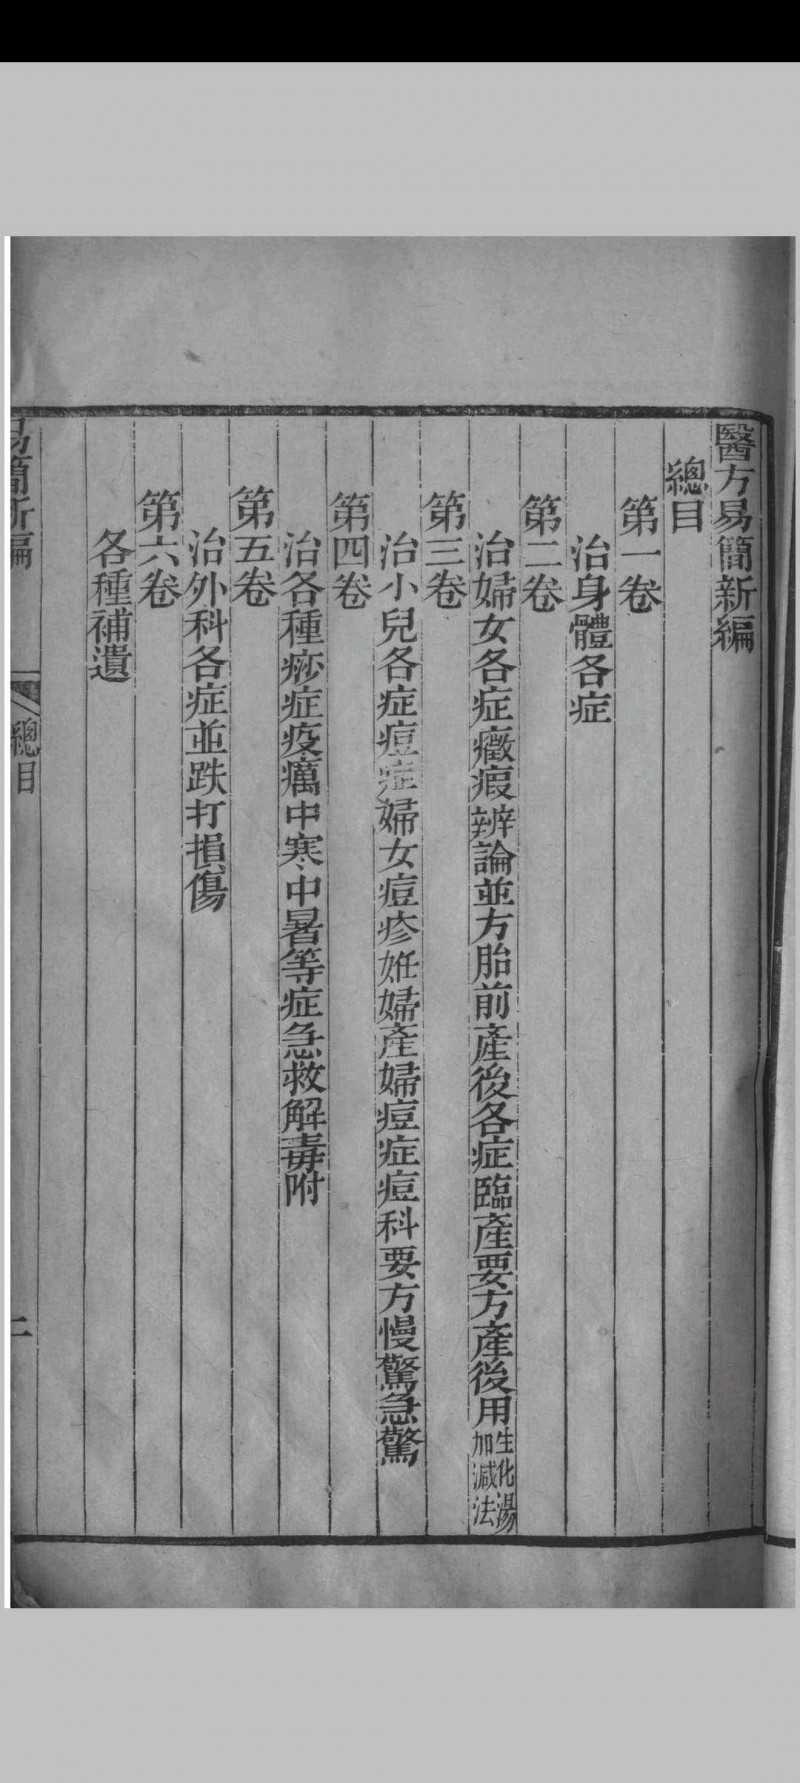 醫方易簡新編
總目
第一卷
治身體各症
第二卷
治婦女各症癥瘕辨論並方胎前產後各症臨產要方產後用生化湯加減法
第三卷
治小兒各症痘症婦女痘疹妊婦產婦痘症痘科要方慢驚急驚
第四卷
治各種痧症疫癘中寒中暑等症急救解毒附
第五卷
治外科各症並跌打損傷
第六卷
各種補遺
易簡新編
總目